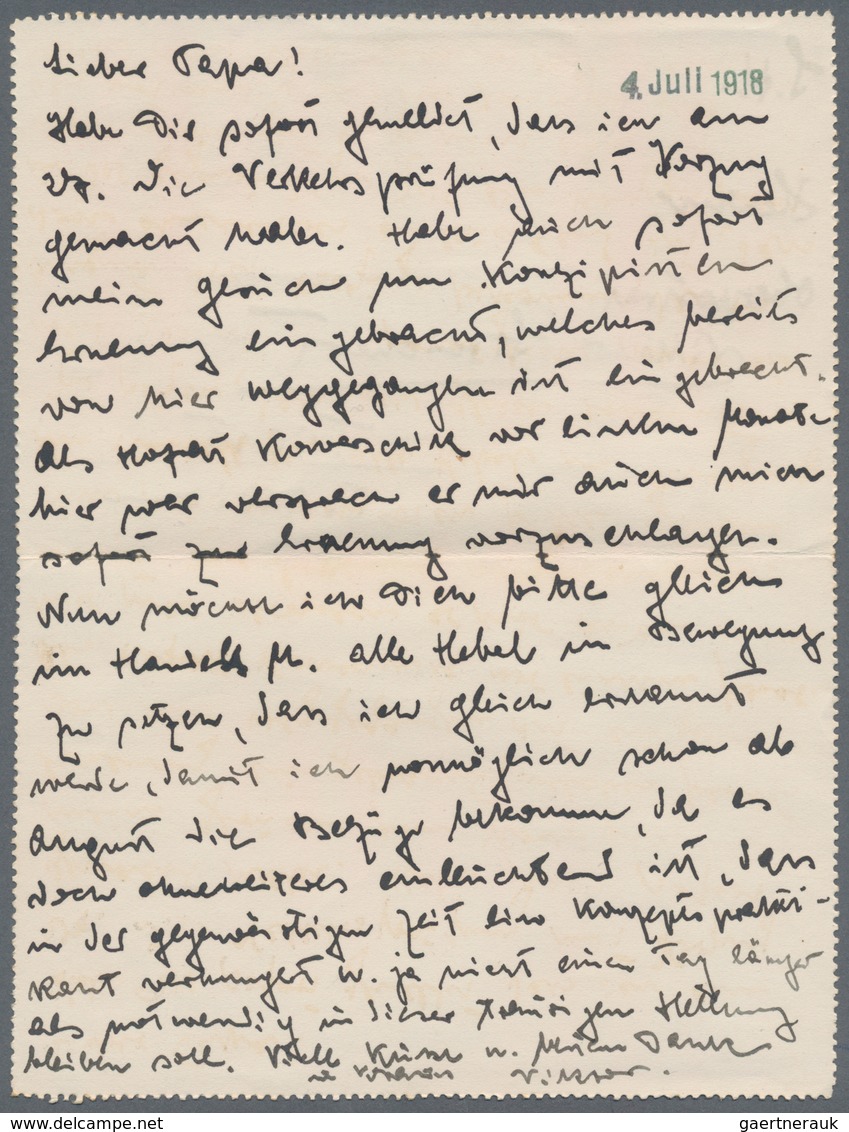 Lieber Papa!
4. Juli 1918
Habe Dir sofort gemeldet, dass ich am
27. die Verkehrsprüfung mit Vorzug
gemacht habe. Habe auch sofort
mein Gesuch um Konzipisten
Ernennung eingebracht, welches bereits
von hier weggegangen ist eingebracht.
Als Hofrat vor einem Monate
hier war versprach er mir auch mich
sofort zur Ernennung vorzuschlagen.
Nun möchte ich Dich bitte gleich
im Handels M. alle Hebel in Bewegung
zu setzen, dass ich gleich ernannt
werde, damit ich womöglich schon ab
August die Bezüge bekomme, da es
doch ohneweiteres einleuchtend ist, dass
in der gegenwärtigen Zeit ein Konzeptsprakti-
kant verhungert u. ja nicht einen Tag länger
als notwendig in dieser traurigen Stellung
bleiben soll. Viele Küsse u. Dank
im voraus Viktor.
gaertnerauk